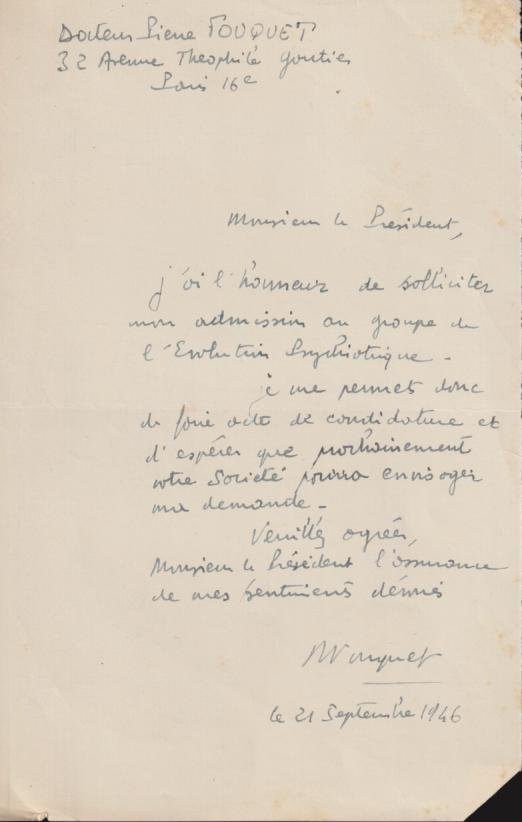 Docteur Pierre FOUQUET
32 Avenue Théophile Gautier
Paris 16e
Monsieur le Président,
j'ai l'honneur de solliciter
mon admission au groupe de
l'Evolution Psychiatrique.
je me permets donc
de faire acte de candidature et
d'espérer que prochainement
votre Société pourra envisager
ma demande.
Veuillez agréer,
Monsieur le Président l'assurance
de mes sentiments dévoués
PFouquet
le 21 Septembre 1946